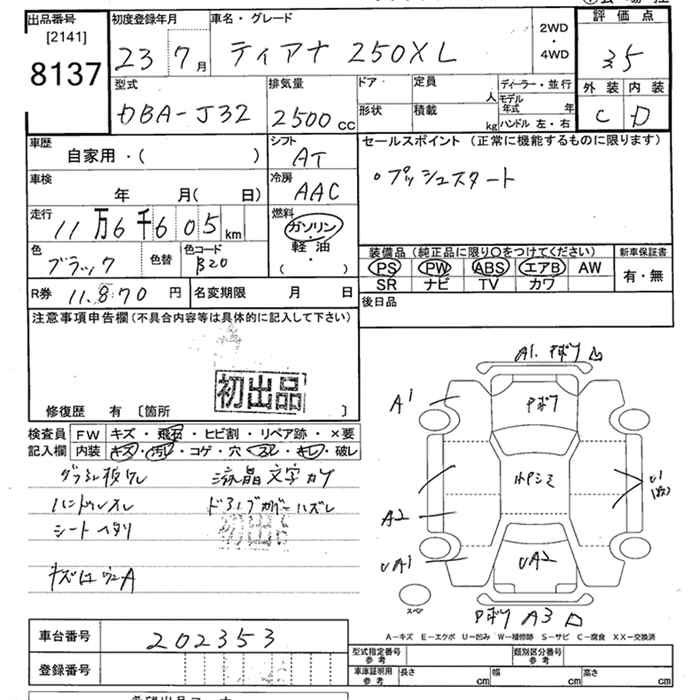 出品番号
[2141]
8137
初度登録年月
23 7月
車名・グレード
ティアナ 250XL
2WD
・
4WD
評価点
3.5
外装 内装
C D
型式
DBA-J32
排気量
2500 cc
ドア 定員 人
形状 積載 kg
ディーラー・並行
モデル年式 年
ハンドル 左・右
車歴
自家用・( )
シフト
AT
セールスポイント (正常に機能するものに限ります)
○プッシュスタート
車検
年 月( 日)
冷房
AAC
走行
11万6千605km
燃料
ガソリン
・
軽油
・
( )
色
ブラック
色替
色コード
B20
装備品 (純正品に限り○をつけてください)
PS PW ABS エアB AW
SR ナビ TV カワ
新車保証書
有・無
R券 11,870円
名変期限 月 日
後日品
注意事項申告欄 (不具合内容等は具体的に記入して下さい)
初出品
修復歴 有 [箇所 ]
検査員
記入欄
FW キズ・飛石・ヒビ割・リペア跡・×要
内装 キズ・汚レ・コゲ・穴・スレ・キレ・破レ
液晶文字カケ
ハンドルスレ
シートヘタリ
初出品
A1
A2
UA1
UA2
A3
スペア
A-キズ E-エクボ U-凹み W-補修跡 S-サビ C-腐食 XX-交換済
車台番号 202353
登録番号
型式指定番号
参考
類別区分番号
参考
車庫証明用
参考
長さ cm 幅 cm 高さ cm